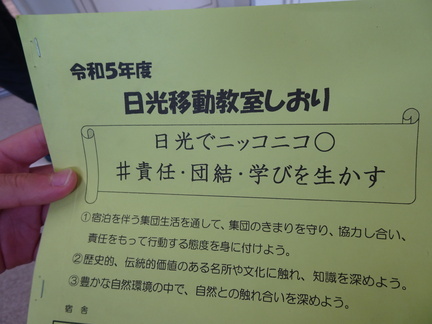 令和5年度
日光移動教室しおり
日光でニッコニコ○
#責任・団結・学びを生かす
①宿泊を伴う集団生活を通して、集団のきまりを守り、協力し合い、
責任をもって行動する態度を身に付けよう。
②歴史的、伝統的価値のある名所や文化に触れ、知識を深めよう。
③豊かな自然環境の中で、自然との触れ合いを深めよう。
宿舎